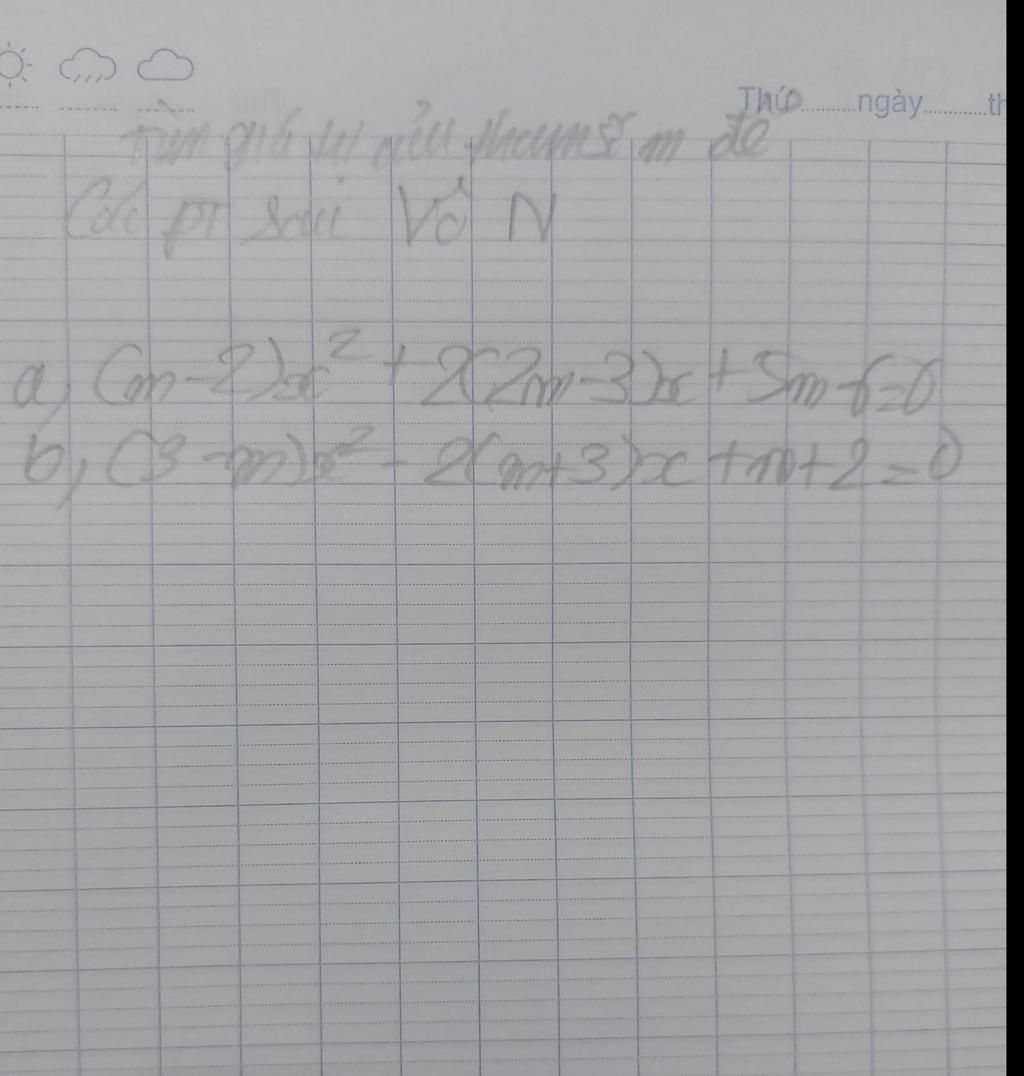 Thứ.........ngày.........th
Tìm giá trị của tham số m để
Các pt sau Vô N
a, (m-2)x² + 2(2m-3)x + 5m-6=0
b, (3-m)x² - 2(m+3)x + m+2=0